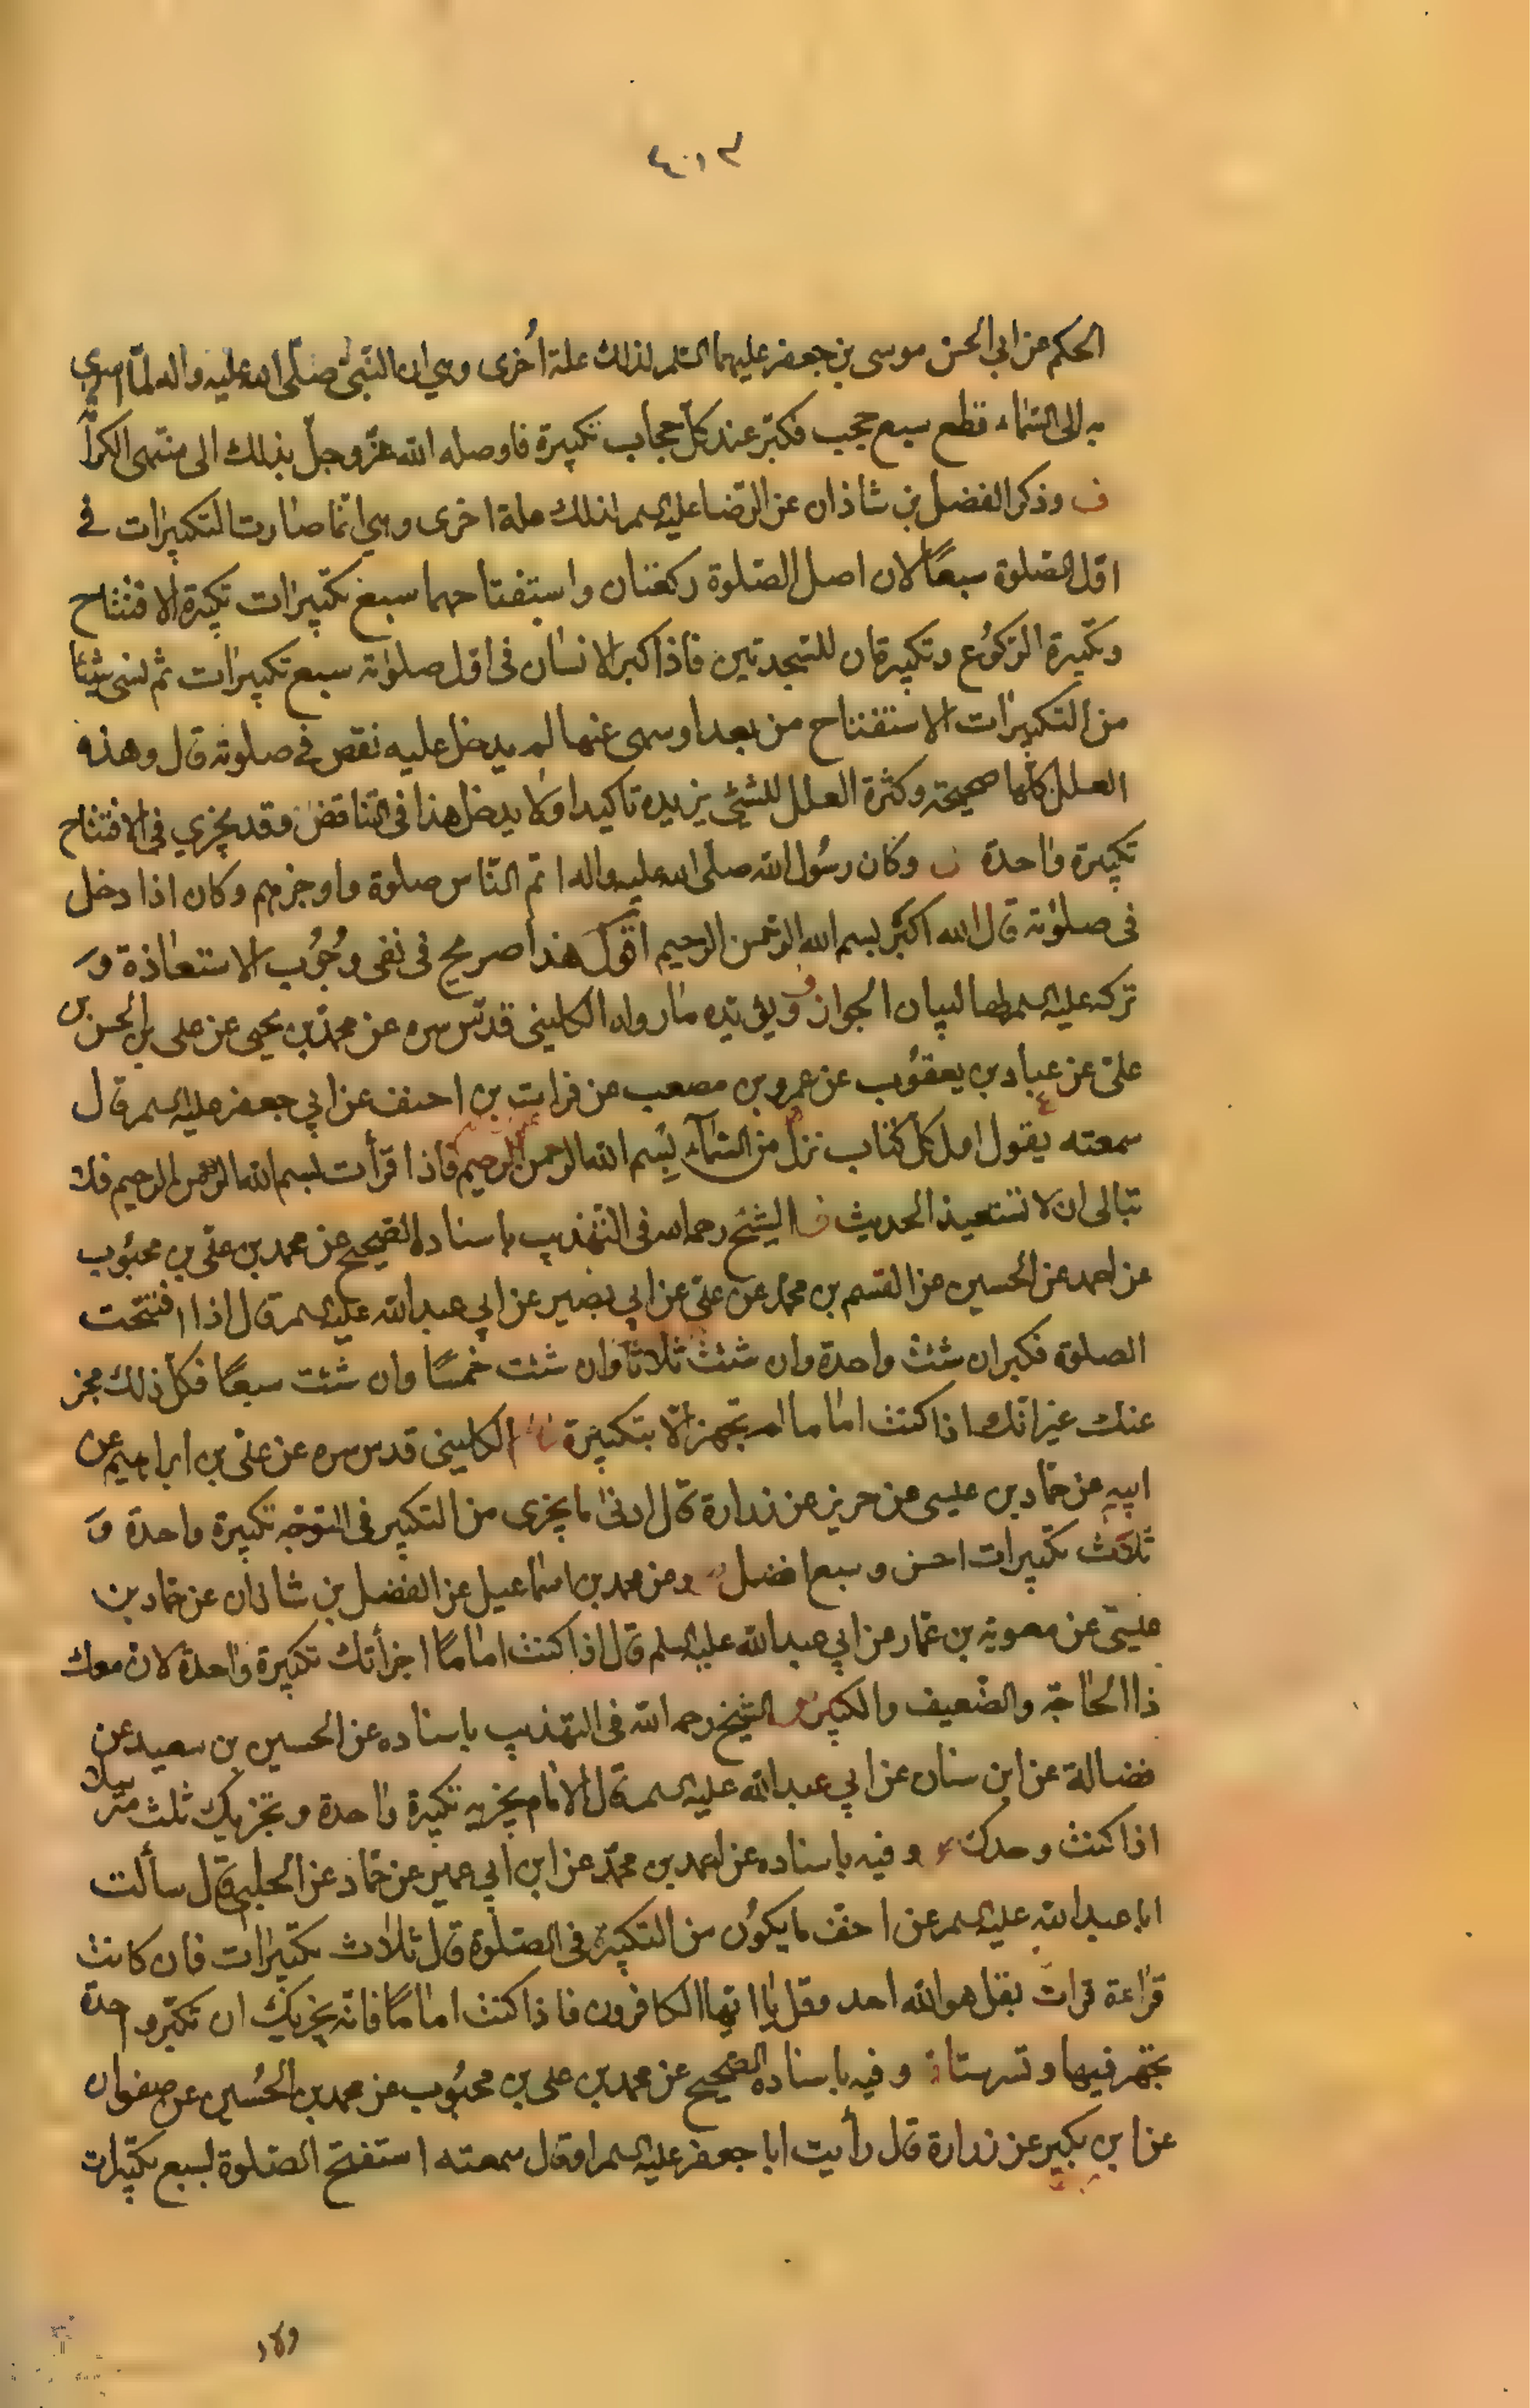 الحكم عن ابي الحسن موسى بن جعفر عليهما السلم لذلك علة اُخرى وهي ان النّبيّ صلّى الله عليه واله لمّا اسري
به الى السّماء قطع سبع حجب فكبّر عند كلّ حجاب تكبيرة فاوصله الله عزّ وجلّ بذلك الى منتهى الكرا
ف وذكر الفضل بن شاذان عن الرّضا عليه السلم لذلك علة اخرى وهي انّما صارت التكبيرات في
اوّل الصّلوة سبعًا لان اصل الصّلوة ركعتان واستفتاحهما سبع تكبيرات تكبيرة الافتتاح
وتكبيرة الرّكوُع وتكبيرتان للسّجدتين فاذا كبر الانسان في اوّل صلوته سبع تكبيرات ثم نسى شيئا
من التكبيرات الاستفتاح من بعد او سهى عنها لم يدخل عليه نقص في صلوته قال وهذه
العلل كلّها صحيحة وكثرة العلل للشئ يزيده تاكيدا ولا يدخل هذا في التناقض وقد يجزي في الافتتاح
تكبيرة واحدة ف وكان رسُول الله صلى الله عليه واله اتمّ النّاس صلوة واوجزهم وكان اذا دخل
في صلوته قال الله اكبر بسم الله الرّحمن الرحيم اقول هذا صريح في نفى وجُوب الاستعاذة و
تركه عليه السلم لها لبيان الجواز ويؤيّده ما رواه الكليني قدّس سره عن محمّد بن يحيى عن على بن الحسن بن
علىّ عن عباد بن يعقوُب عن عمرو بن مصعب عن فرات بن احنف عن ابي جعفر عليه السلم قال
سمعته يقول اول كل كتاب نزل من السّماء بسم الله الرحمن الرحيم فاذا قرأت بسم الله الرحمن الرحيم فلا
تبالى ان لا تستعيذ الحديث ف الشيخ رحمه الله في التّهذيب باسناده الصّحيح عن محمد بن علىّ بن محبُوب
عن احمد عن الحسين عن القسم بن محمّد عن علىّ عن ابي بصير عن ابي عبد الله عليه السلم قال اذا افتتحت
الصلوة فكبر ان شئت واحدة وان شئت ثلاثا وان شئت خمسًا وان شئت سبعًا فكلّ ذلك مجز
عنك غير انّك اذا كنت اماما لم تجهر الّا بتكبيرة الكليني قدس سره عن علىّ بن ابراهيم عن
ابيه عن حمّاد بن عيسى عن حريز عن زرارة قال ادنى ما يجزى من التكبير في التوجّه تكبيرة واحدة و
ثلاث تكبيرات احسن وسبع افضل وعن محمد بن اسماعيل عن الفضل بن شاذان عن حمّاد بن
عيسى عن معوية بن عمّار عن ابي عبد الله عليه السلم قال اذا كنت امامًا اجزأتك تكبيرة واحدة لان معك
ذا الحاجة والضّعيف والكبير الشيخ رحمه الله في التهذيب باسناده عن الحسين بن سعيد عن
فضالة عن ابن سنان عن ابي عبد الله عليه السلم قال الامام يجزيه تكبيرة واحدة وتجزيك ثلث مترسلا
اذا كنت وحدك وفيه باسناده عن احمد بن محمّد عن ابن ابي عمير عن حمّاد عن الحلبي قال سألت
ابا عبد الله عليه السلم عن اخفّ ما يكوُن من التكبير في الصّلوة قال ثلاث تكبيرات فان كانت
قراءة قرات بقل هو الله احد وقل يا ايّها الكافرون فاذا كنت امامًا فانّه يجزيك ان تكبّر واحدة
تجهر فيها وتسر ستا وفيه باسناده الصّحيح عن محمد بن على بن محبُوب عن محمد بن الحُسين عن صفوان
عن ابن بكير عن زرارة قال رأيت ابا جعفر عليه السلم او قال سمعته استفتح الصّلوة بسبع تكبيرات
ولاء